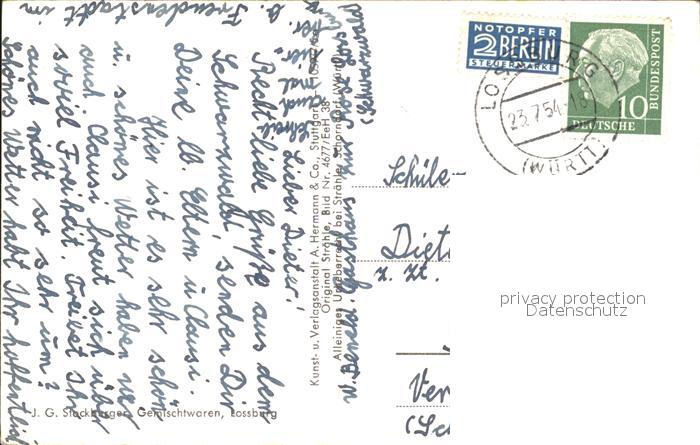 b. Freudenstadt im
Lieber Dieter!
Recht liebe Grüße aus dem
Schwarzwald senden Dir
Deine lb. Eltern u. Clausi.
Hier ist es sehr schön
u. schönes Wetter haben wir
und Clausi freut sich über
soviel Freiheit. Freust Ihr
auch nicht so sehr um?
Schönes Wetter habt Ihr hoffentlich
Kunst- u. Verlagsanstalt A. Hermann & Co., Stuttgart
Original Strähle, Bild Nr. 4677/EeH 38
Alleiniges bei Strähle, Schorndorf (Württ.)
J. G. Stockburger, Gemischtwaren, Lossburg
NOTOPFER
2 BERLIN
STEUERMARKE
LOSSBURG
23.7.54
(WÜRTT)
10
DEUTSCHE
BUNDESPOST
Schüle
Diet
z. Zt.
Ver
(Sc
privacy protection
Datenschutz